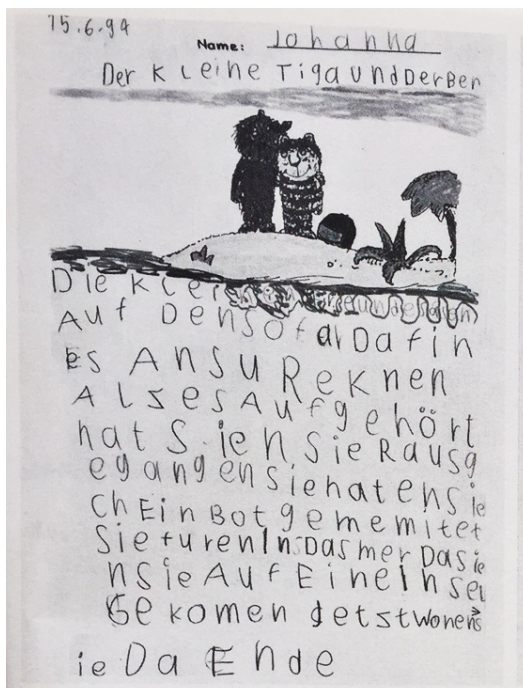 15.6.94
Name: Johanna
Der Kleine Tiga und Der Ber
Die Klei
Auf Den Sofar Da fin
Es An su Reknen
Alses Aufgehört
hat Sien Sie Rausg
egangen Sie haten Sie
ch Ein Bot gememitet
Sie furen Ins Das mer Das ie
n Sie Auf Eine Insel
Gekomen Jetst Wonen s
ie Da Ende